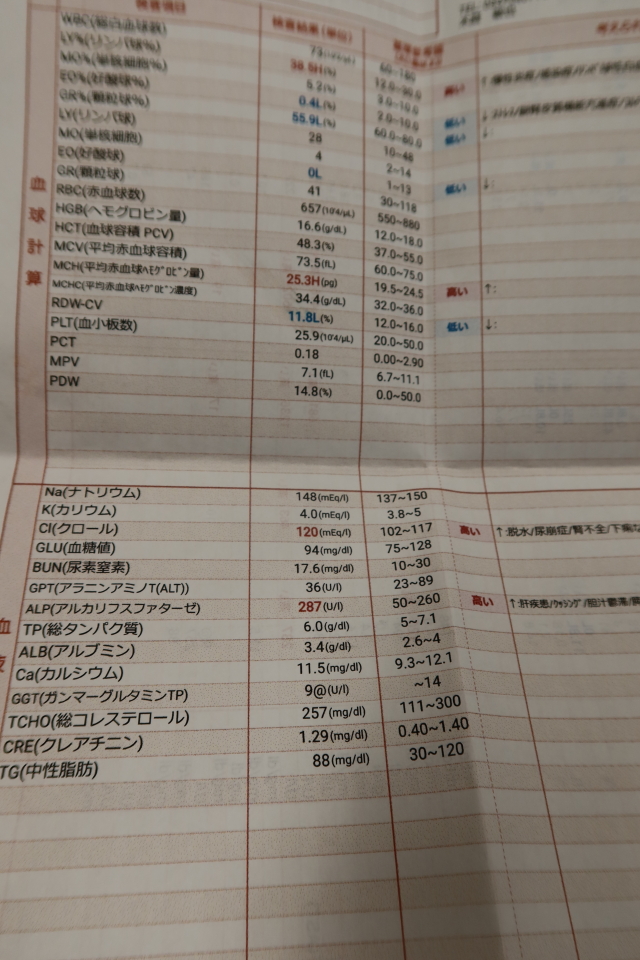 検査項目 検査結果(単位)
WBC(総白血球数) 73 60~180
LY%(リンパ球%) 38.5H(%) 12.0~30.0 高い
MO%(単核細胞%) 5.2(%) 3.0~10.0
EO%(好酸球%) 0.4L(%) 2.0~10.0 低い ↓
GR%(顆粒球%) 55.9L(%) 60.0~80.0 低い ↓:
LY(リンパ球) 28 10~48
MO(単核細胞) 4 2~14
EO(好酸球) 0L 1~13 低い ↓:
GR(顆粒球) 41 30~118
RBC(赤血球数) 657(10^4/μL) 550~880
HGB(ヘモグロビン量) 16.6(g/dL) 12.0~18.0
HCT(血球容積 PCV) 48.3(%) 37.0~55.0
MCV(平均赤血球容積) 73.5(fL) 60.0~75.0
MCH(平均赤血球ヘモグロビン量) 25.3H(pg) 19.5~24.5 高い ↑:
MCHC(平均赤血球ヘモグロビン濃度) 34.4(g/dL) 32.0~36.0
RDW-CV 11.8L(%) 12.0~16.0 低い ↓:
PLT(血小板数) 25.9(10^4/μL) 20.0~50.0
PCT 0.18 0.00~2.90
MPV 7.1(fL) 6.7~11.1
PDW 14.8(%) 0.0~50.0
血球計算
Na(ナトリウム) 148(mEq/l) 137~150
K(カリウム) 4.0(mEq/l) 3.8~5
Cl(クロール) 120(mEq/l) 102~117 高い ↑:脱水/尿崩症/腎不全/下痢
GLU(血糖値) 94(mg/dl) 75~128
BUN(尿素窒素) 17.6(mg/dl) 10~30
GPT(アラニンアミノT(ALT)) 36(U/l) 23~89
ALP(アルカリフスファターゼ) 287(U/l) 50~260 高い ↑:肝疾患/クッシング/胆汁鬱滞
TP(総タンパク質) 6.0(g/dl) 5~7.1
ALB(アルブミン) 3.4(g/dl) 2.6~4
Ca(カルシウム) 11.5(mg/dl) 9.3~12.1
GGT(ガンマーグルタミンTP) 9@(U/l) ~14
TCHO(総コレステロール) 257(mg/dl) 111~300
CRE(クレアチニン) 1.29(mg/dl) 0.40~1.40
TG(中性脂肪) 88(mg/dl) 30~120
血液